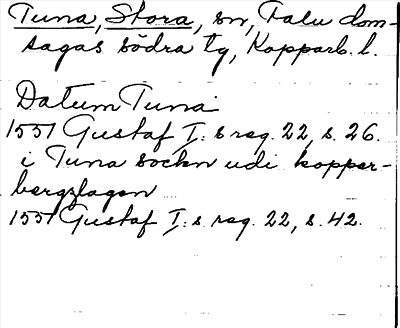 Tuna, Stora, sn, Falu dom-
sagas södra tg, Kopparb. l.
Datum Tuna
1551 Gustaf I:s reg. 22, s. 26.
i Tuna sockn udi kopper-
bergzlagen
1551 Gustaf I:s reg. 22, s. 42.